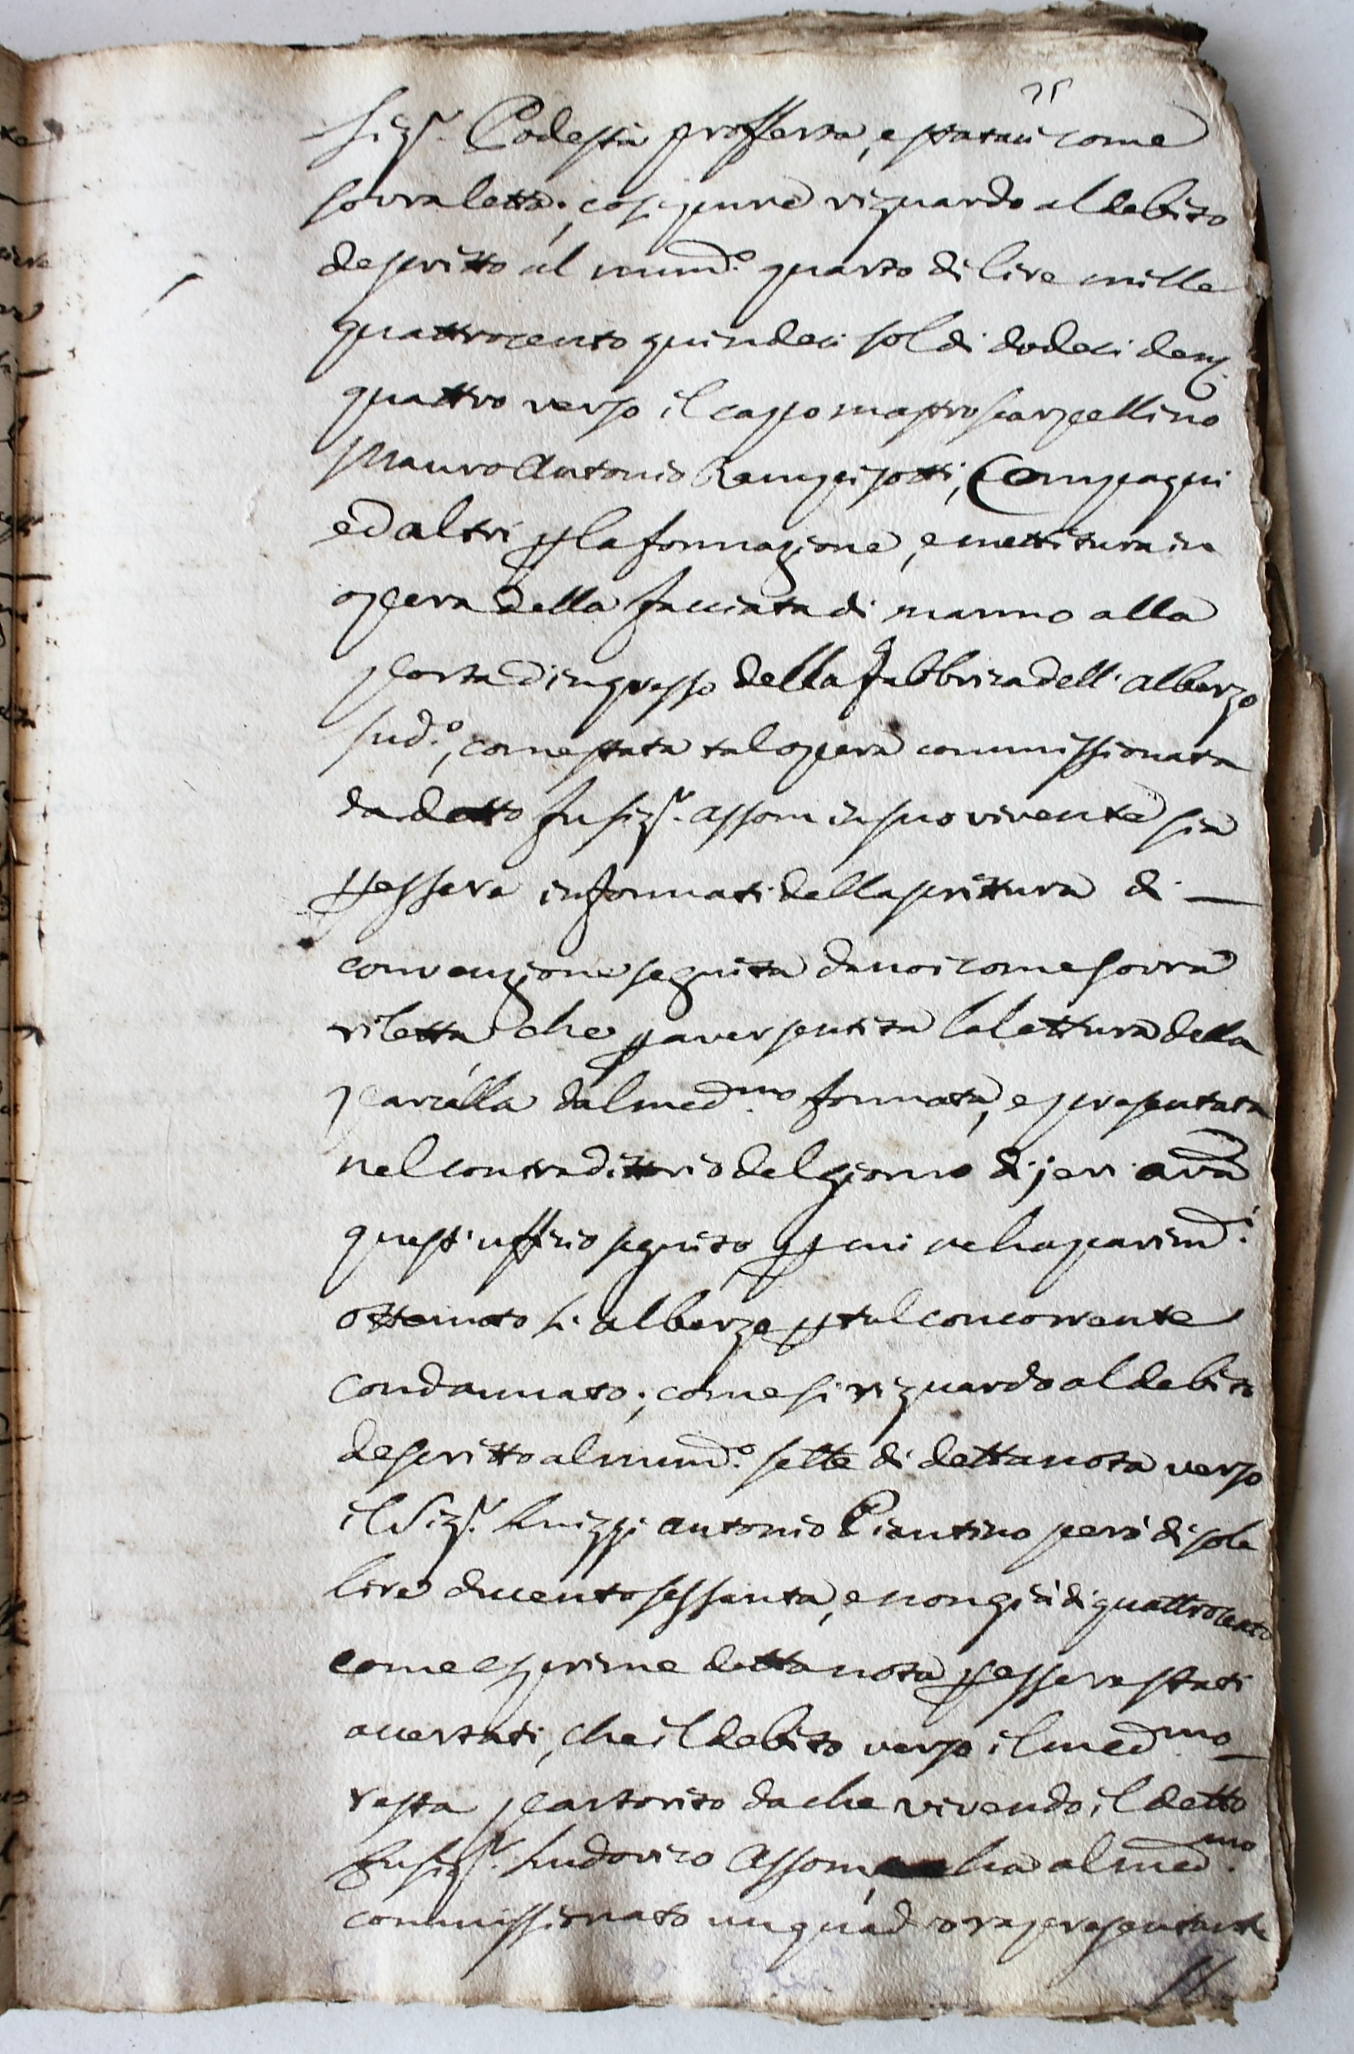 25
Sig.r Podestà profferta, e stataci come
sovra letta; così pure riguardo al debito
descritto al num.o quarto di lire mille
quattrocento quindeci soldi dodeci den.
quattro verso il cappo mastro scarpellino
Mauro Antonio Rampisotti, Compagni
ed altri p la formazione, e mettitura in
opera della facciata di marmo alla
porta d'ingresso della fabbrica dell'albergo
sud.o, come stata tal opera commissionata
da detto fu sig.r Assom in suo vivente sia
p essere informati della scrittura di —
convenzione seguita da noi come sovra
riletta che p aver sentita la lettura della
parcella dal med.mo formata, e presentata
nel contradittorio del giorno di jeri avã
quest'uffizio seguito p cui ne ha parim.i
ottenuto li albergo p tal concorrente
condannato; come si riguardo al debito
descritto al num.o sette di detta nota verso
il Sig.r Luiggi Antonio Piantino però di sole
lire ducento sessanta, e non già di quattrocento
come esprime detta nota p essere stati
accertati, che il debito verso il med.mo
resta partorito da che vivendo il detto
fu sig.r Ludovico Assom, ha al med.mo
commissionato un quadro rapresentante